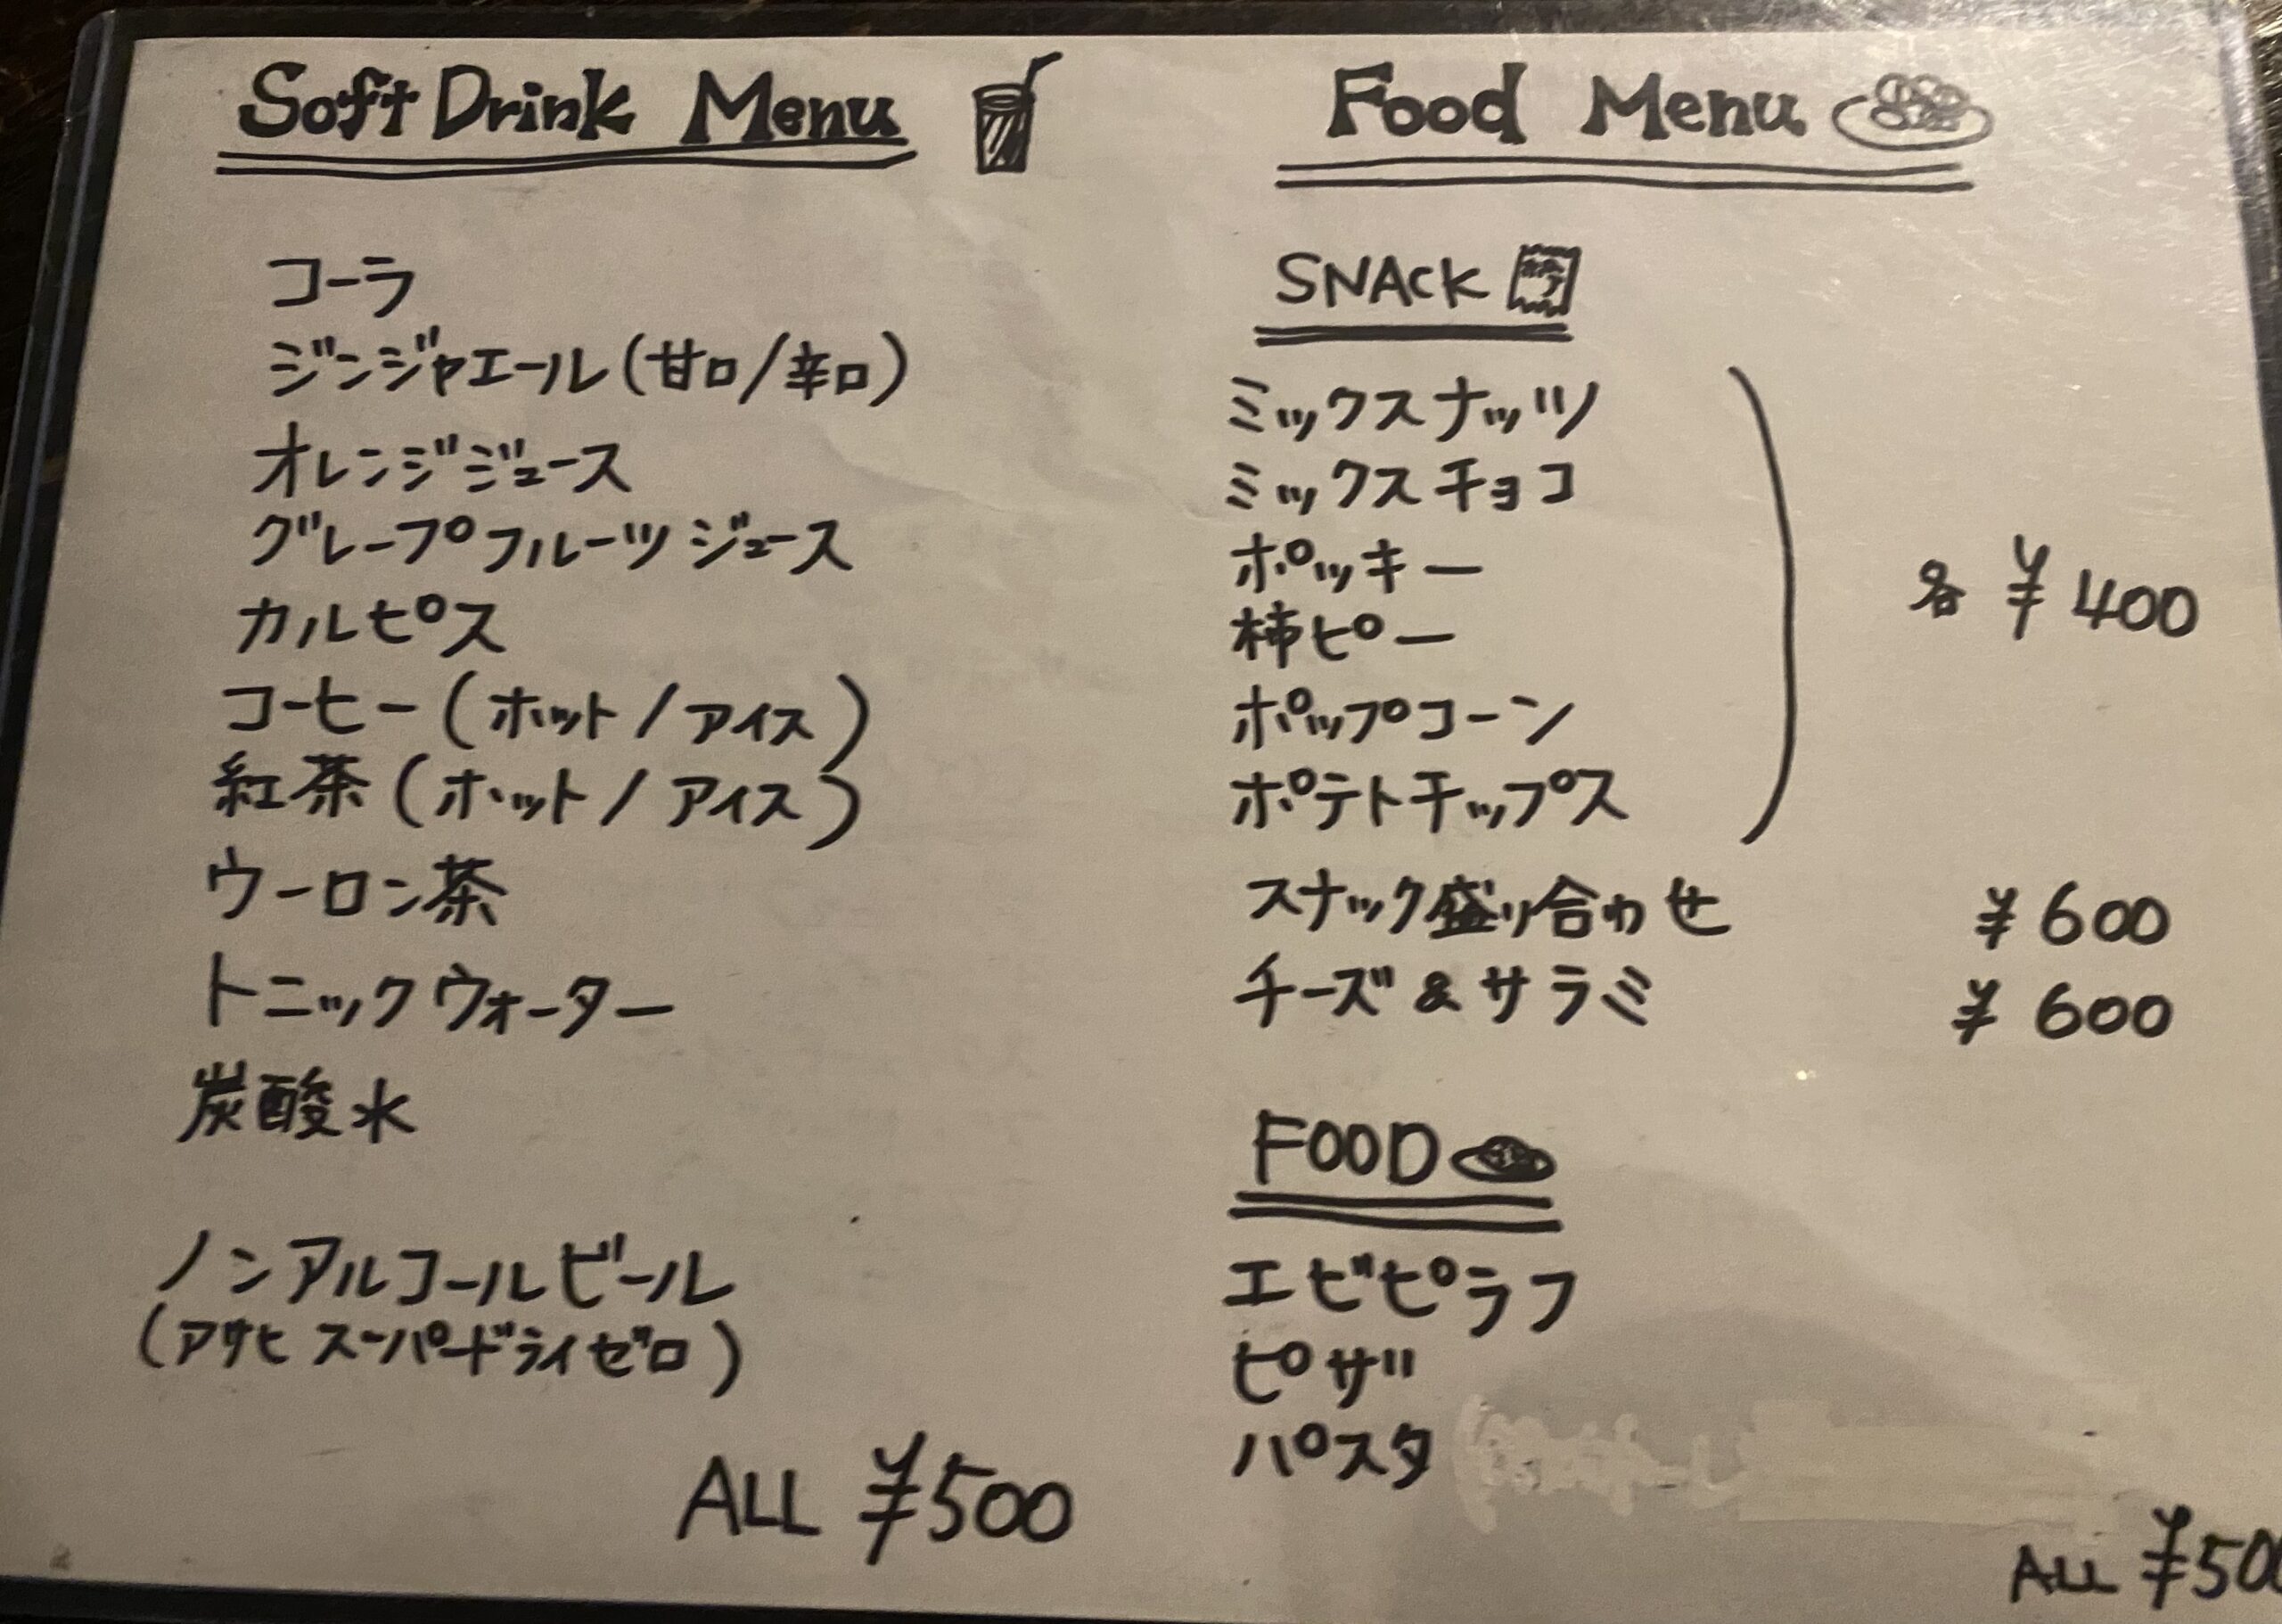 Soft Drink Menu
コーラ
ジンジャエール(甘口/辛口)
オレンジジュース
グレープフルーツジュース
カルピス
コーヒー(ホット/アイス)
紅茶(ホット/アイス)
ウーロン茶
トニックウォーター
炭酸水
ノンアルコールビール
(アサヒ スーパードライゼロ)
ALL ¥500
Food Menu
SNACK
ミックスナッツ
ミックスチョコ
ポッキー
柿ピー
ポップコーン
ポテトチップス
各 ¥400
スナック盛り合わせ ¥600
チーズ&サラミ ¥600
FOOD
エビピラフ
ピザ
パスタ
ALL